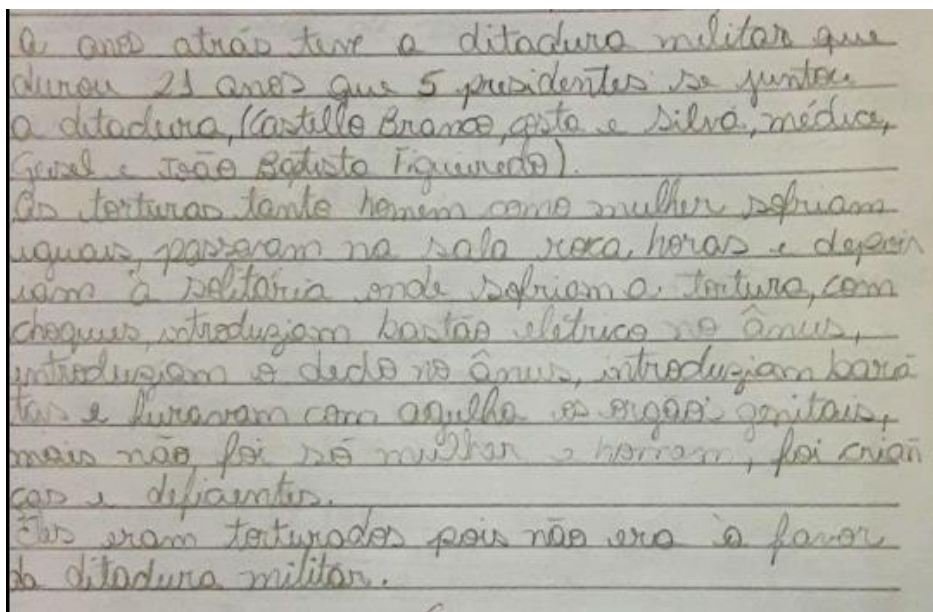 a anos atrás teve a ditadura militar que
durou 21 anos que 5 presidentes se juntou
a ditadura, (Castello Branco, costa e silva, médice,
Geisel e João Batista Figueiredo).
As torturas tanto homem como mulher sofriam
iguais, passavam na sala roxa, horas e depois
iam à solitária onde sofriam a tortura, com
choques, introduziam bastão elétrico no ânus,
introduziam o dedo no ânus, introduziam bara
tas e furavam com agulha os orgãos genitais,
mais não foi só mulher e homem, foi crian
ças e deficientes.
Eles eram torturados pois não era à favor
da ditadura militar.